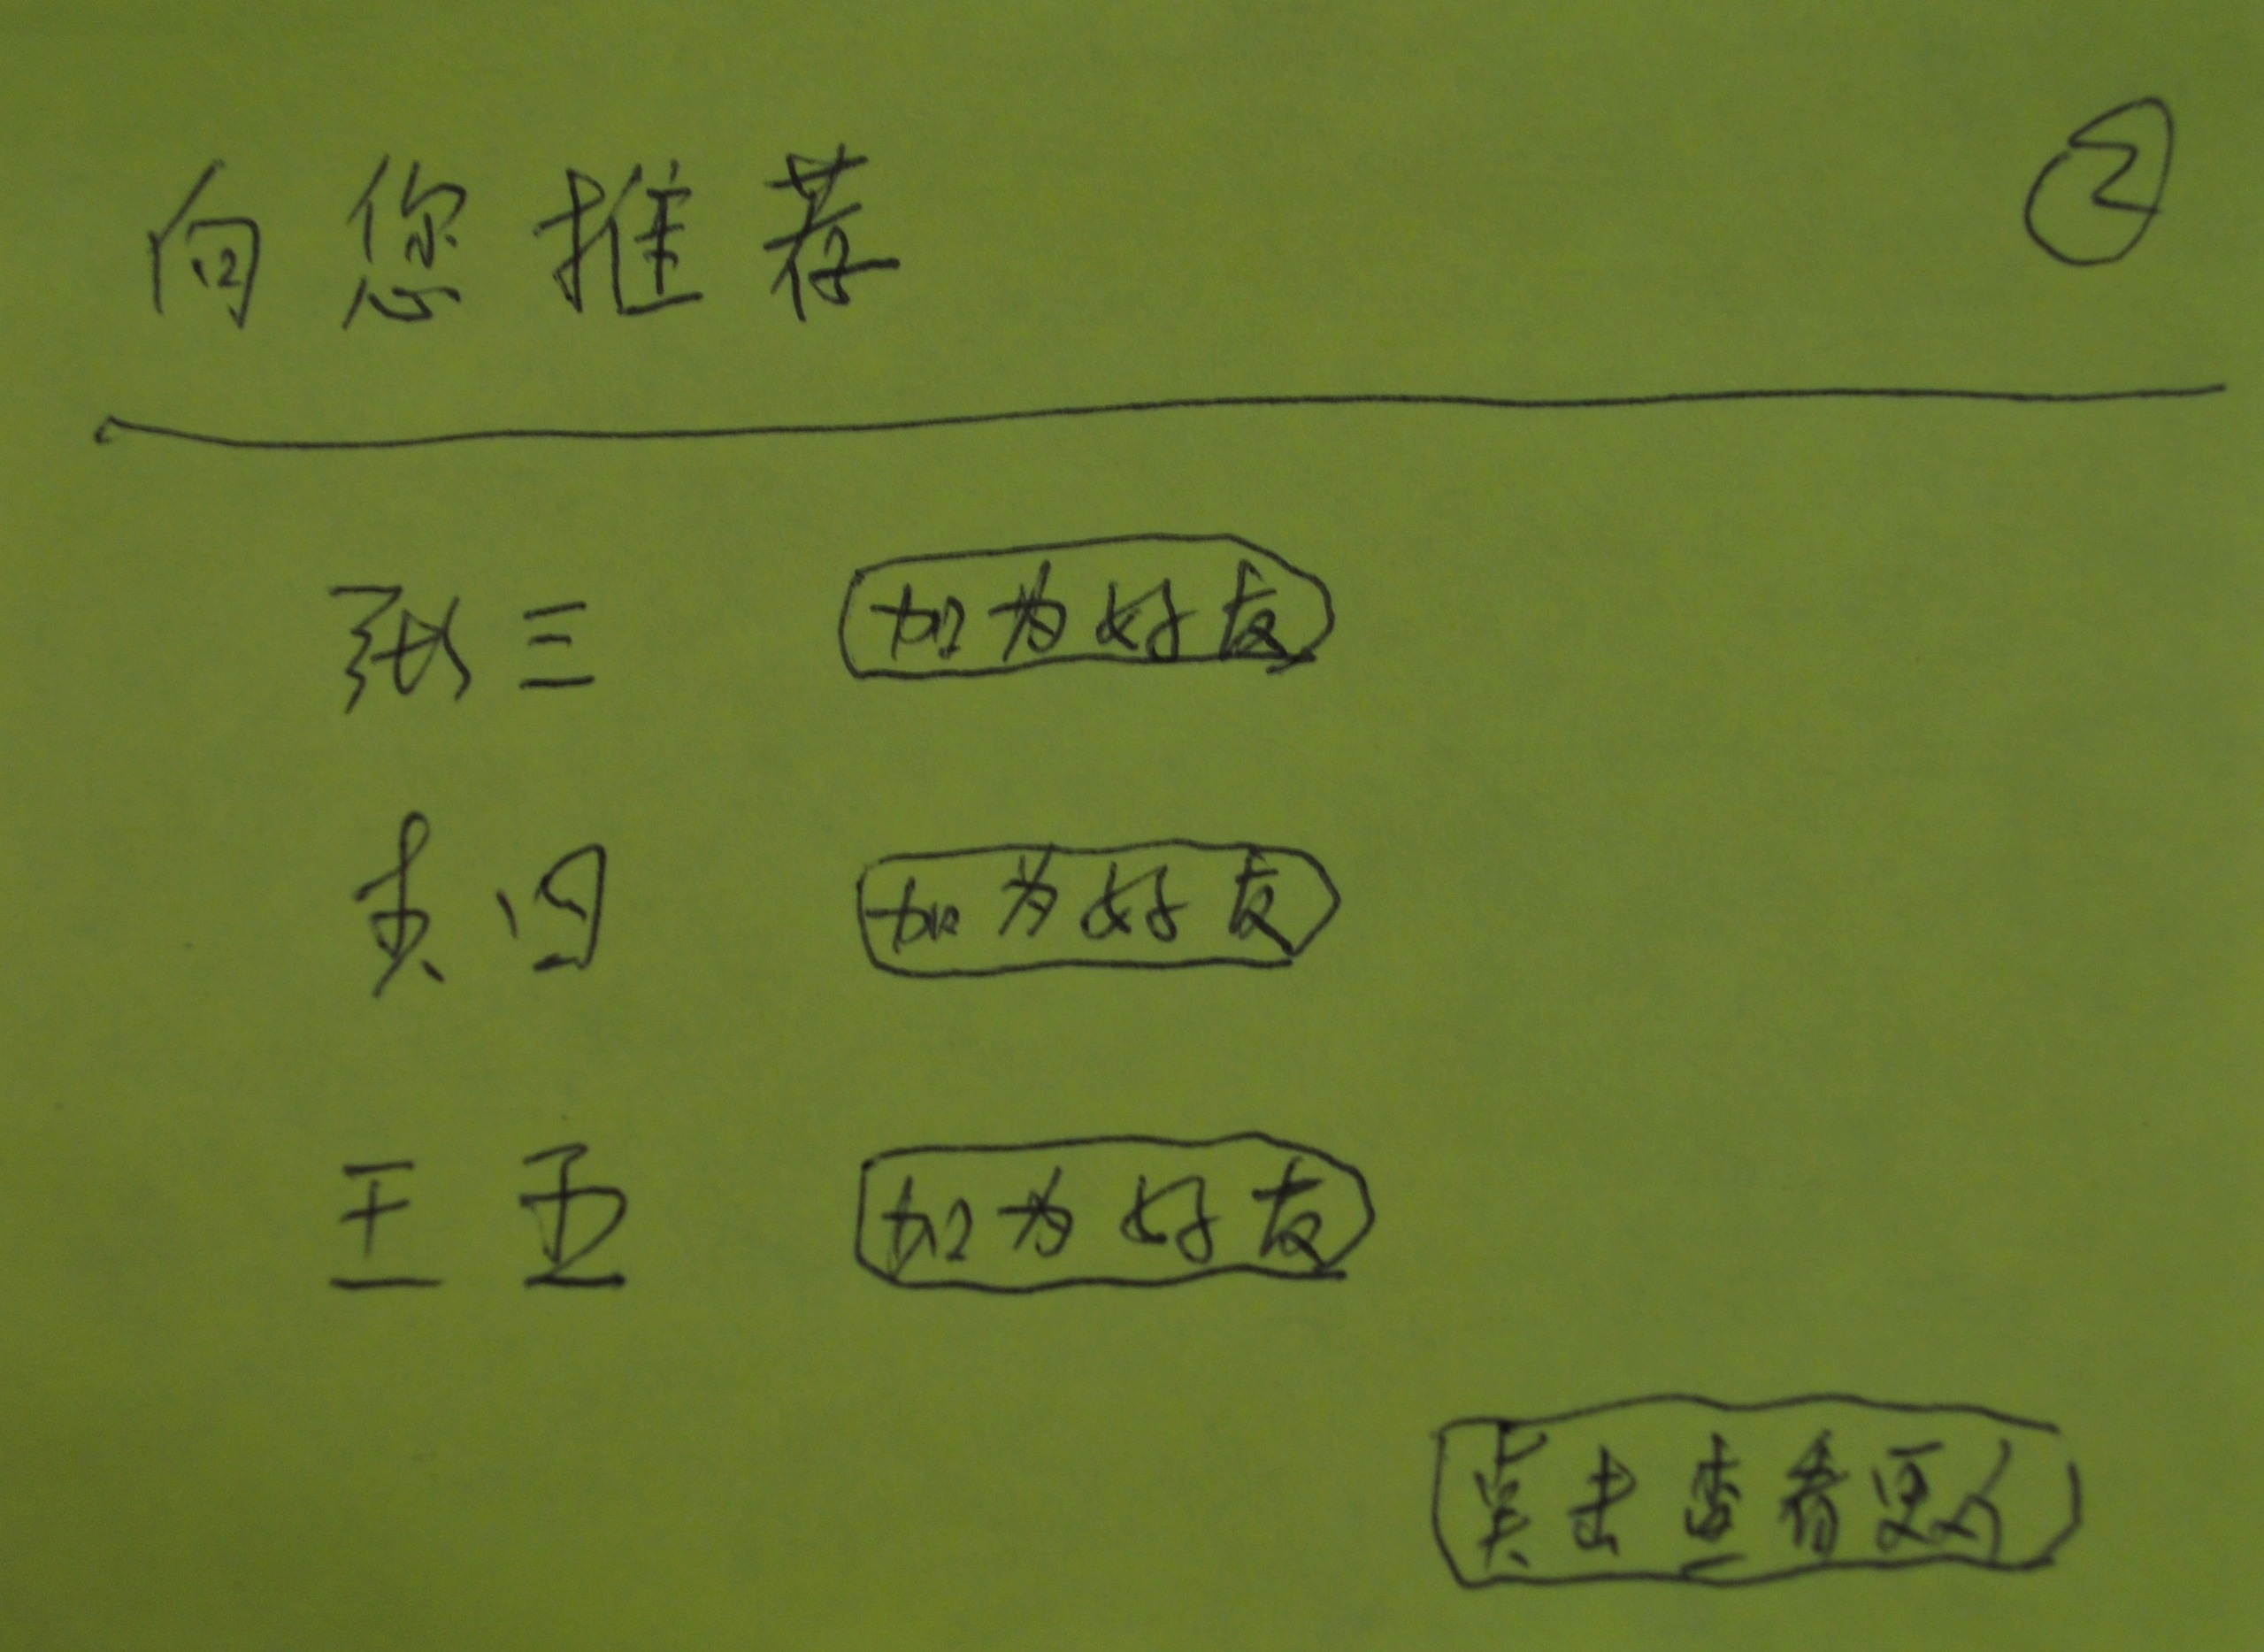 向您推荐 ②
张三 加为好友
李四 加为好友
王五 加为好友
点击查看更多